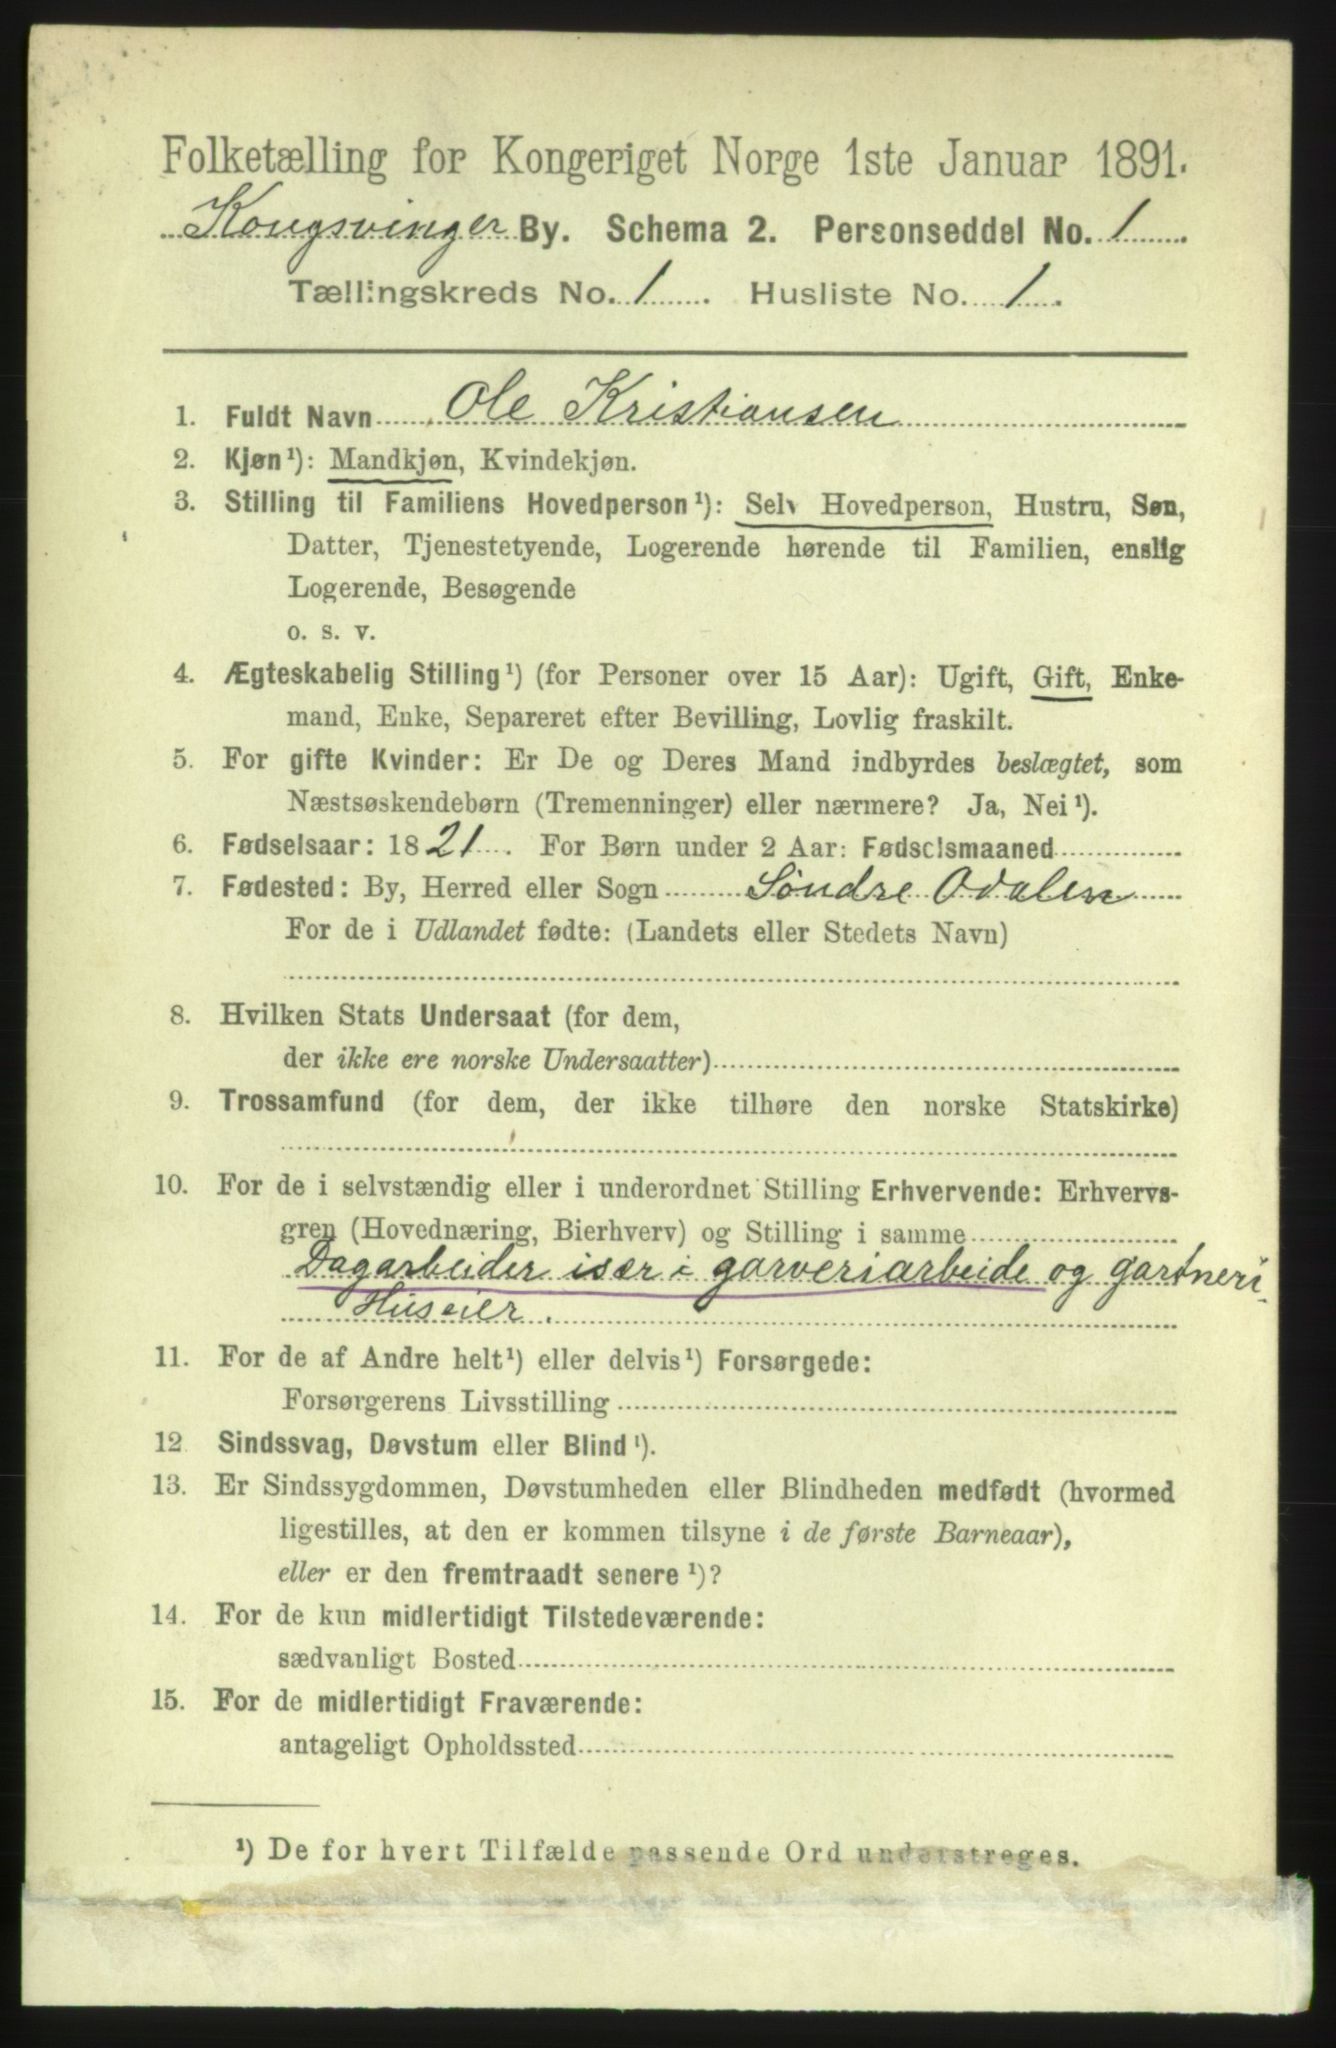 Folketælling for Kongeriget Norge 1ste Januar 1891.
Kongsvinger By. Schema 2. Personseddel No. 1
Tællingskreds No. 1 Husliste No. 1
1. Fuldt Navn Ole Kristiansen
2. Kjøn¹): Mandkjøn, Kvindekjøn.
3. Stilling til Familiens Hovedperson¹): Selv Hovedperson, Hustru, Søn,
Datter, Tjenestetyende, Logerende hørende til Familien, enslig
Logerende, Besøgende
o. s. v.
4. Ægteskabelig Stilling¹) (for Personer over 15 Aar): Ugift, Gift, Enke-
mand, Enke, Separeret efter Bevilling, Lovlig fraskilt.
5. For gifte Kvinder: Er De og Deres Mand indbyrdes beslægtet, som
Næstsøskendebørn (Tremenninger) eller nærmere? Ja, Nei¹).
6. Fødselsaar: 1821. For Børn under 2 Aar: Fødselsmaaned
7. Fødested: By, Herred eller Sogn Søndre Odalen
For de i Udlandet fødte: (Landets eller Stedets Navn)
8. Hvilken Stats Undersaat (for dem,
der ikke ere norske Undersaatter)
9. Trossamfund (for dem, der ikke tilhøre den norske Statskirke)
10. For de i selvstændig eller i underordnet Stilling Erhvervende: Erhvervs-
gren (Hovednæring, Bierhverv) og Stilling i samme
Dagarbeider især i garveriarbeide og gartneri.
Huseier.
11. For de af Andre helt¹) eller delvis¹) Forsørgede:
Forsørgerens Livsstilling
12 Sindssvag, Døvstum eller Blind¹).
13. Er Sindssygdommen, Døvstumheden eller Blindheden medfødt (hvormed
ligestilles, at den er kommen tilsyne i de første Barneaar),
eller er den fremtraadt senere¹)?
14. For de kun midlertidigt Tilstedeværende:
sædvanligt Bosted
15. For de midlertidigt Fraværende:
antageligt Opholdssted
¹) De for hvert Tilfælde passende Ord understreges.